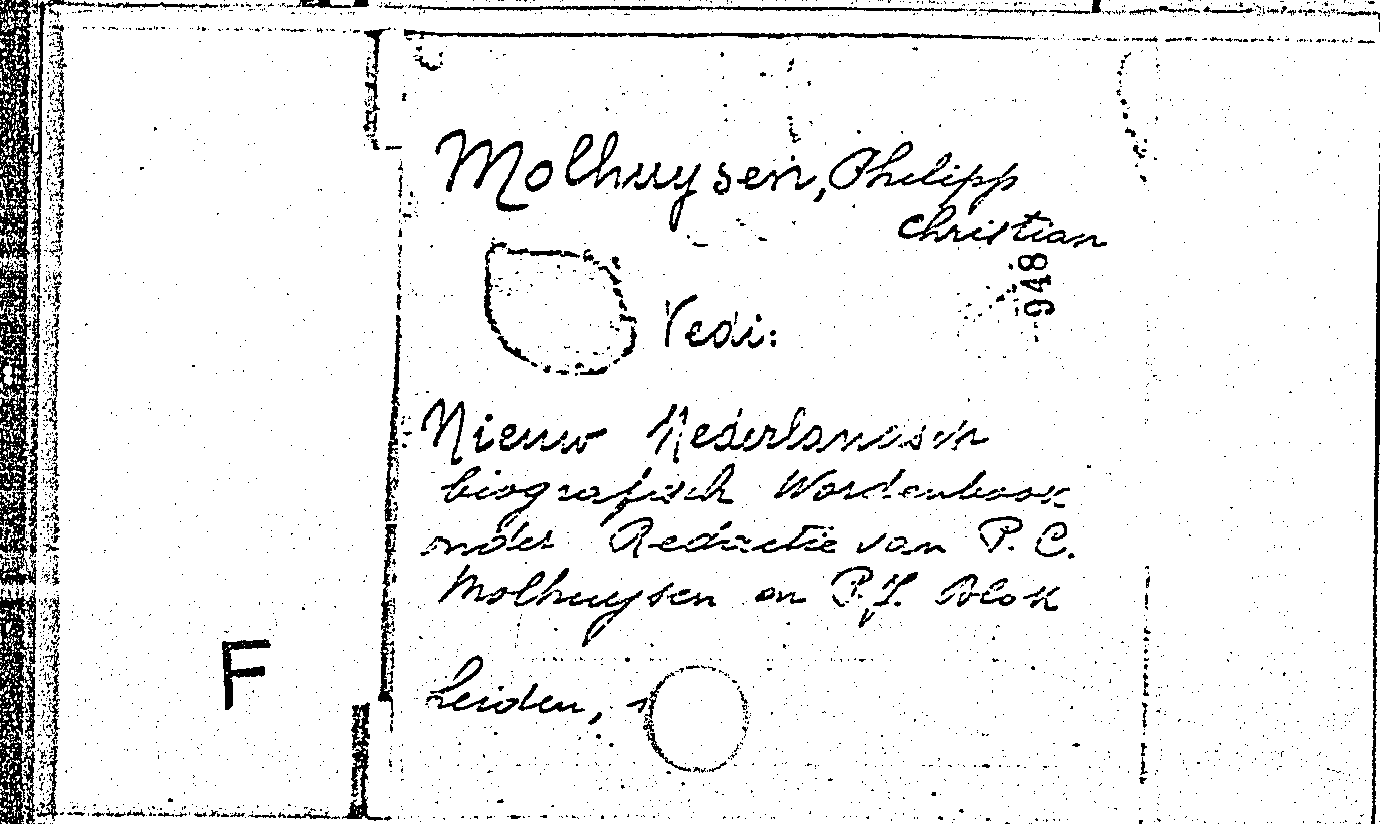 Molhuysen, Philipp
Christian
948
Vedi:
Nieuw Nederlandsch
biografisch Wordenboek
onder Redactie van P. C.
Molhuysen en P. J. Blok
Leiden, 1
F